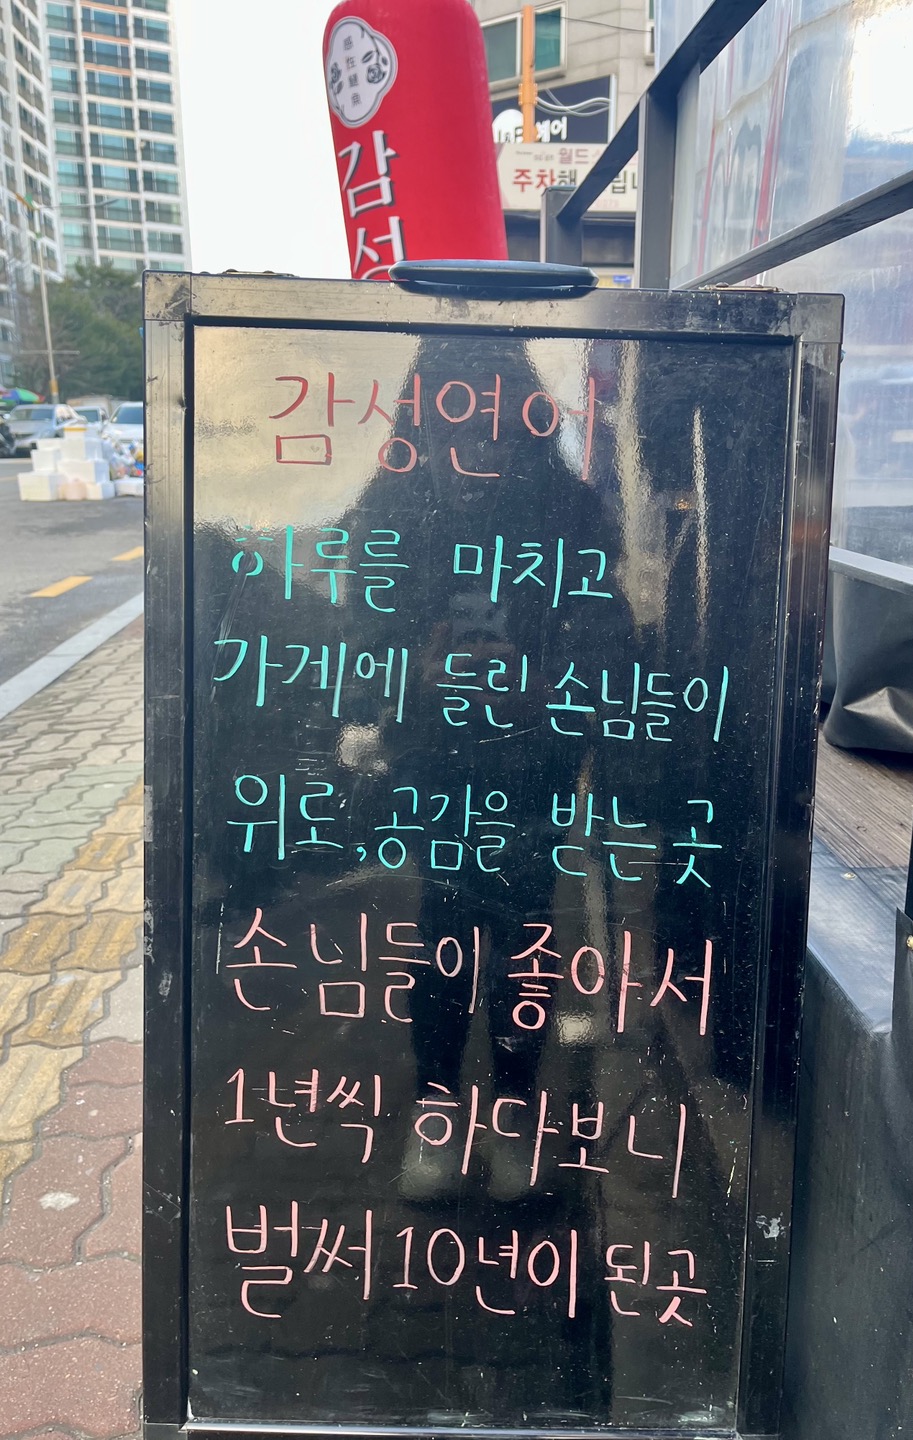 감성
헤어
월드
주차
감성연어
하루를 마치고
가게에 들린 손님들이
위로,공감을 받는곳
손님들이 좋아서
1년씩 하다보니
벌써 10년이 된곳